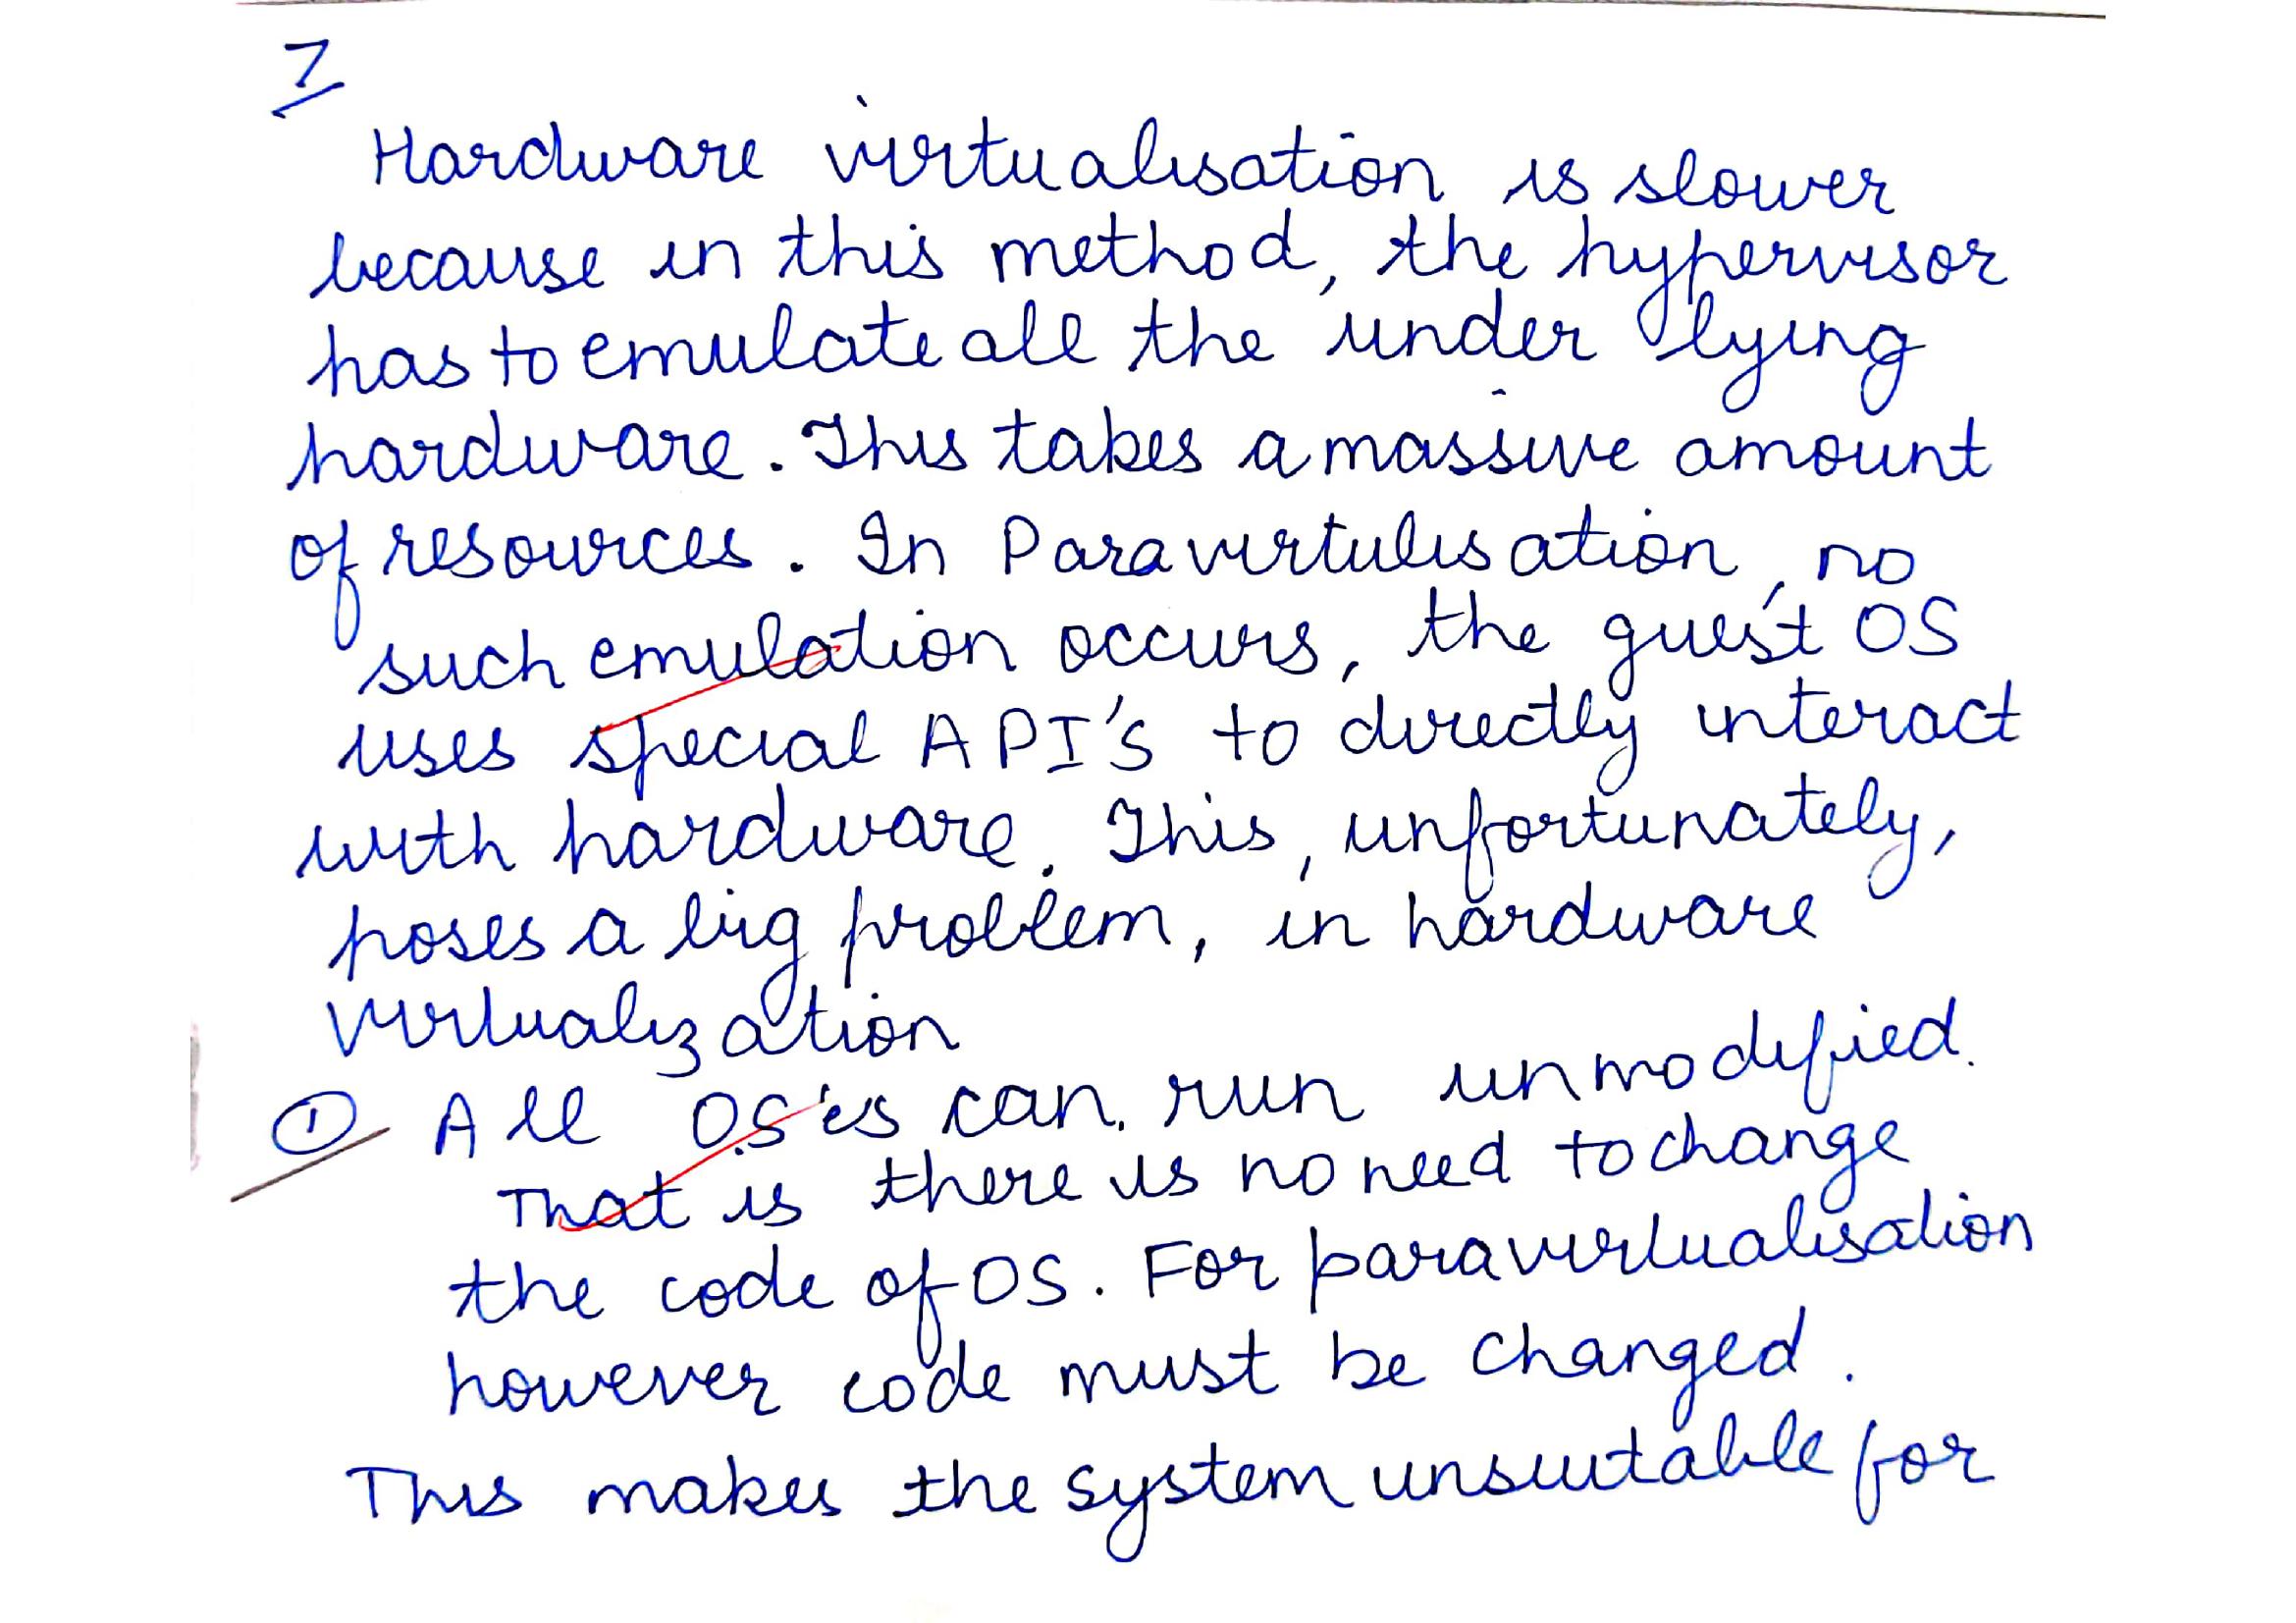 7
Hardware virtualisation is slower
because in this method, the hypervisor
has to emulate all the under lying
hardware. This takes a massive amount
of resources. In Paravirtulisation, no
such emulation occurs, the guest OS
uses special API's to directly interact
with hardware. This, unfortunately,
poses a big problem, in hardware
virtualization
① All OS'es can run unmodified.
That is there is no need to change
the code of OS. For paravirtualisation
however code must be changed.
This makes the system unsuitable for